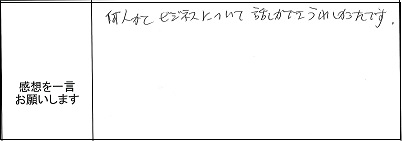 何人かと ビジネスについて 話しができてうれしかったです.
感想を一言
お願いします